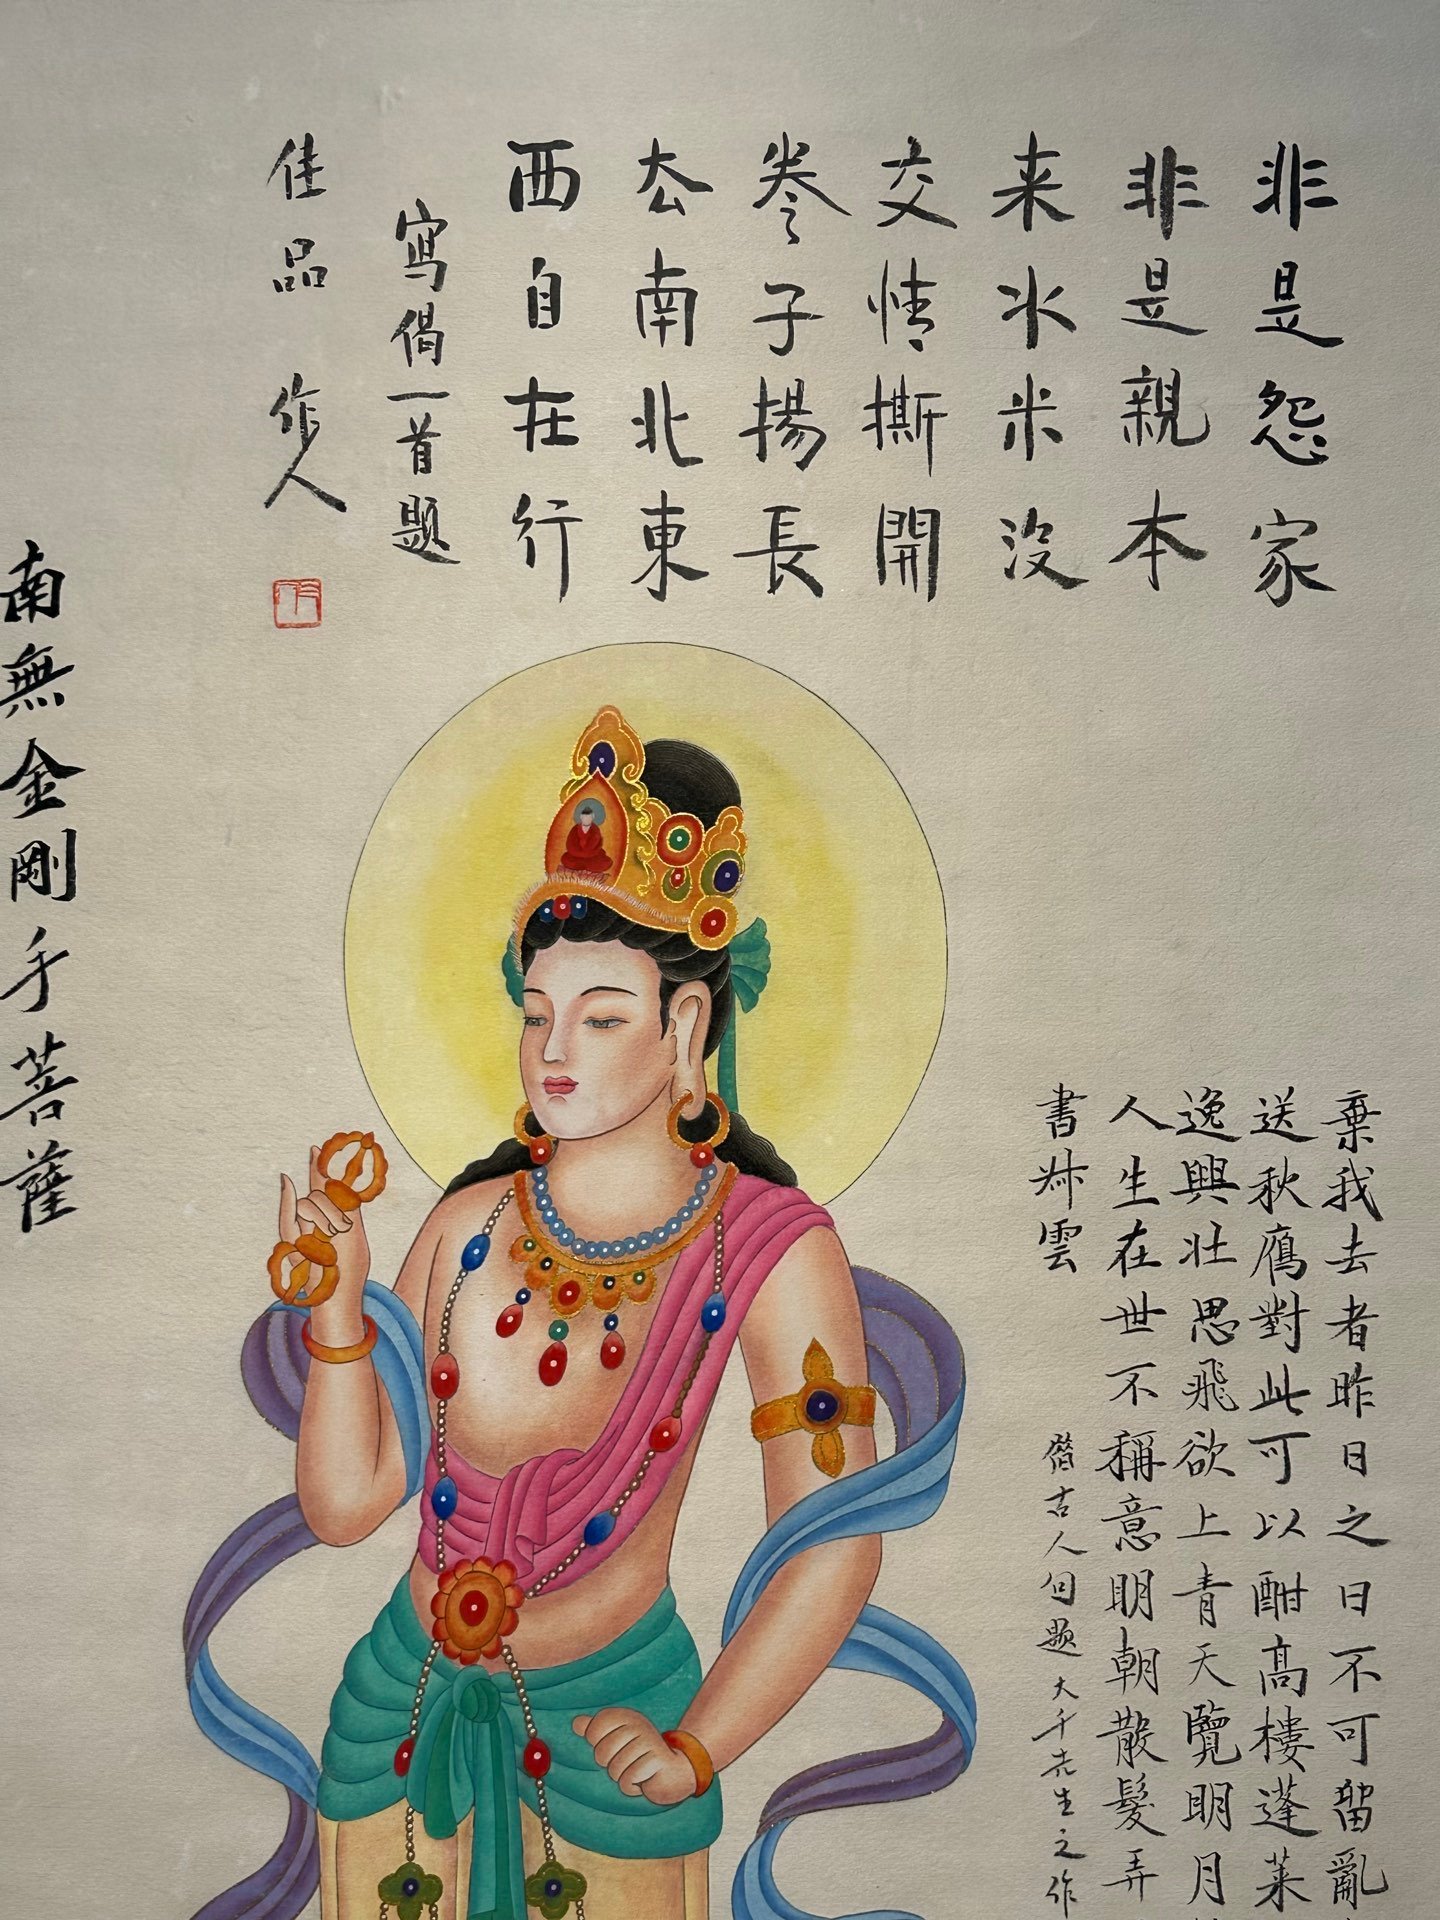 非是怨家
非是親本
来水米没
交情撕開
卷子揚長
厺南北東
西自在行
寫偈一首題
佳品 作人
棄我去者昨日之日不可留亂
送秋鴈對此可以酣高樓蓬莱
逸興壯思飛欲上青天覽明月
人生在世不稱意明朝散髮弄
書叔雲
古人句題大千先生之作
南無金剛手菩薩